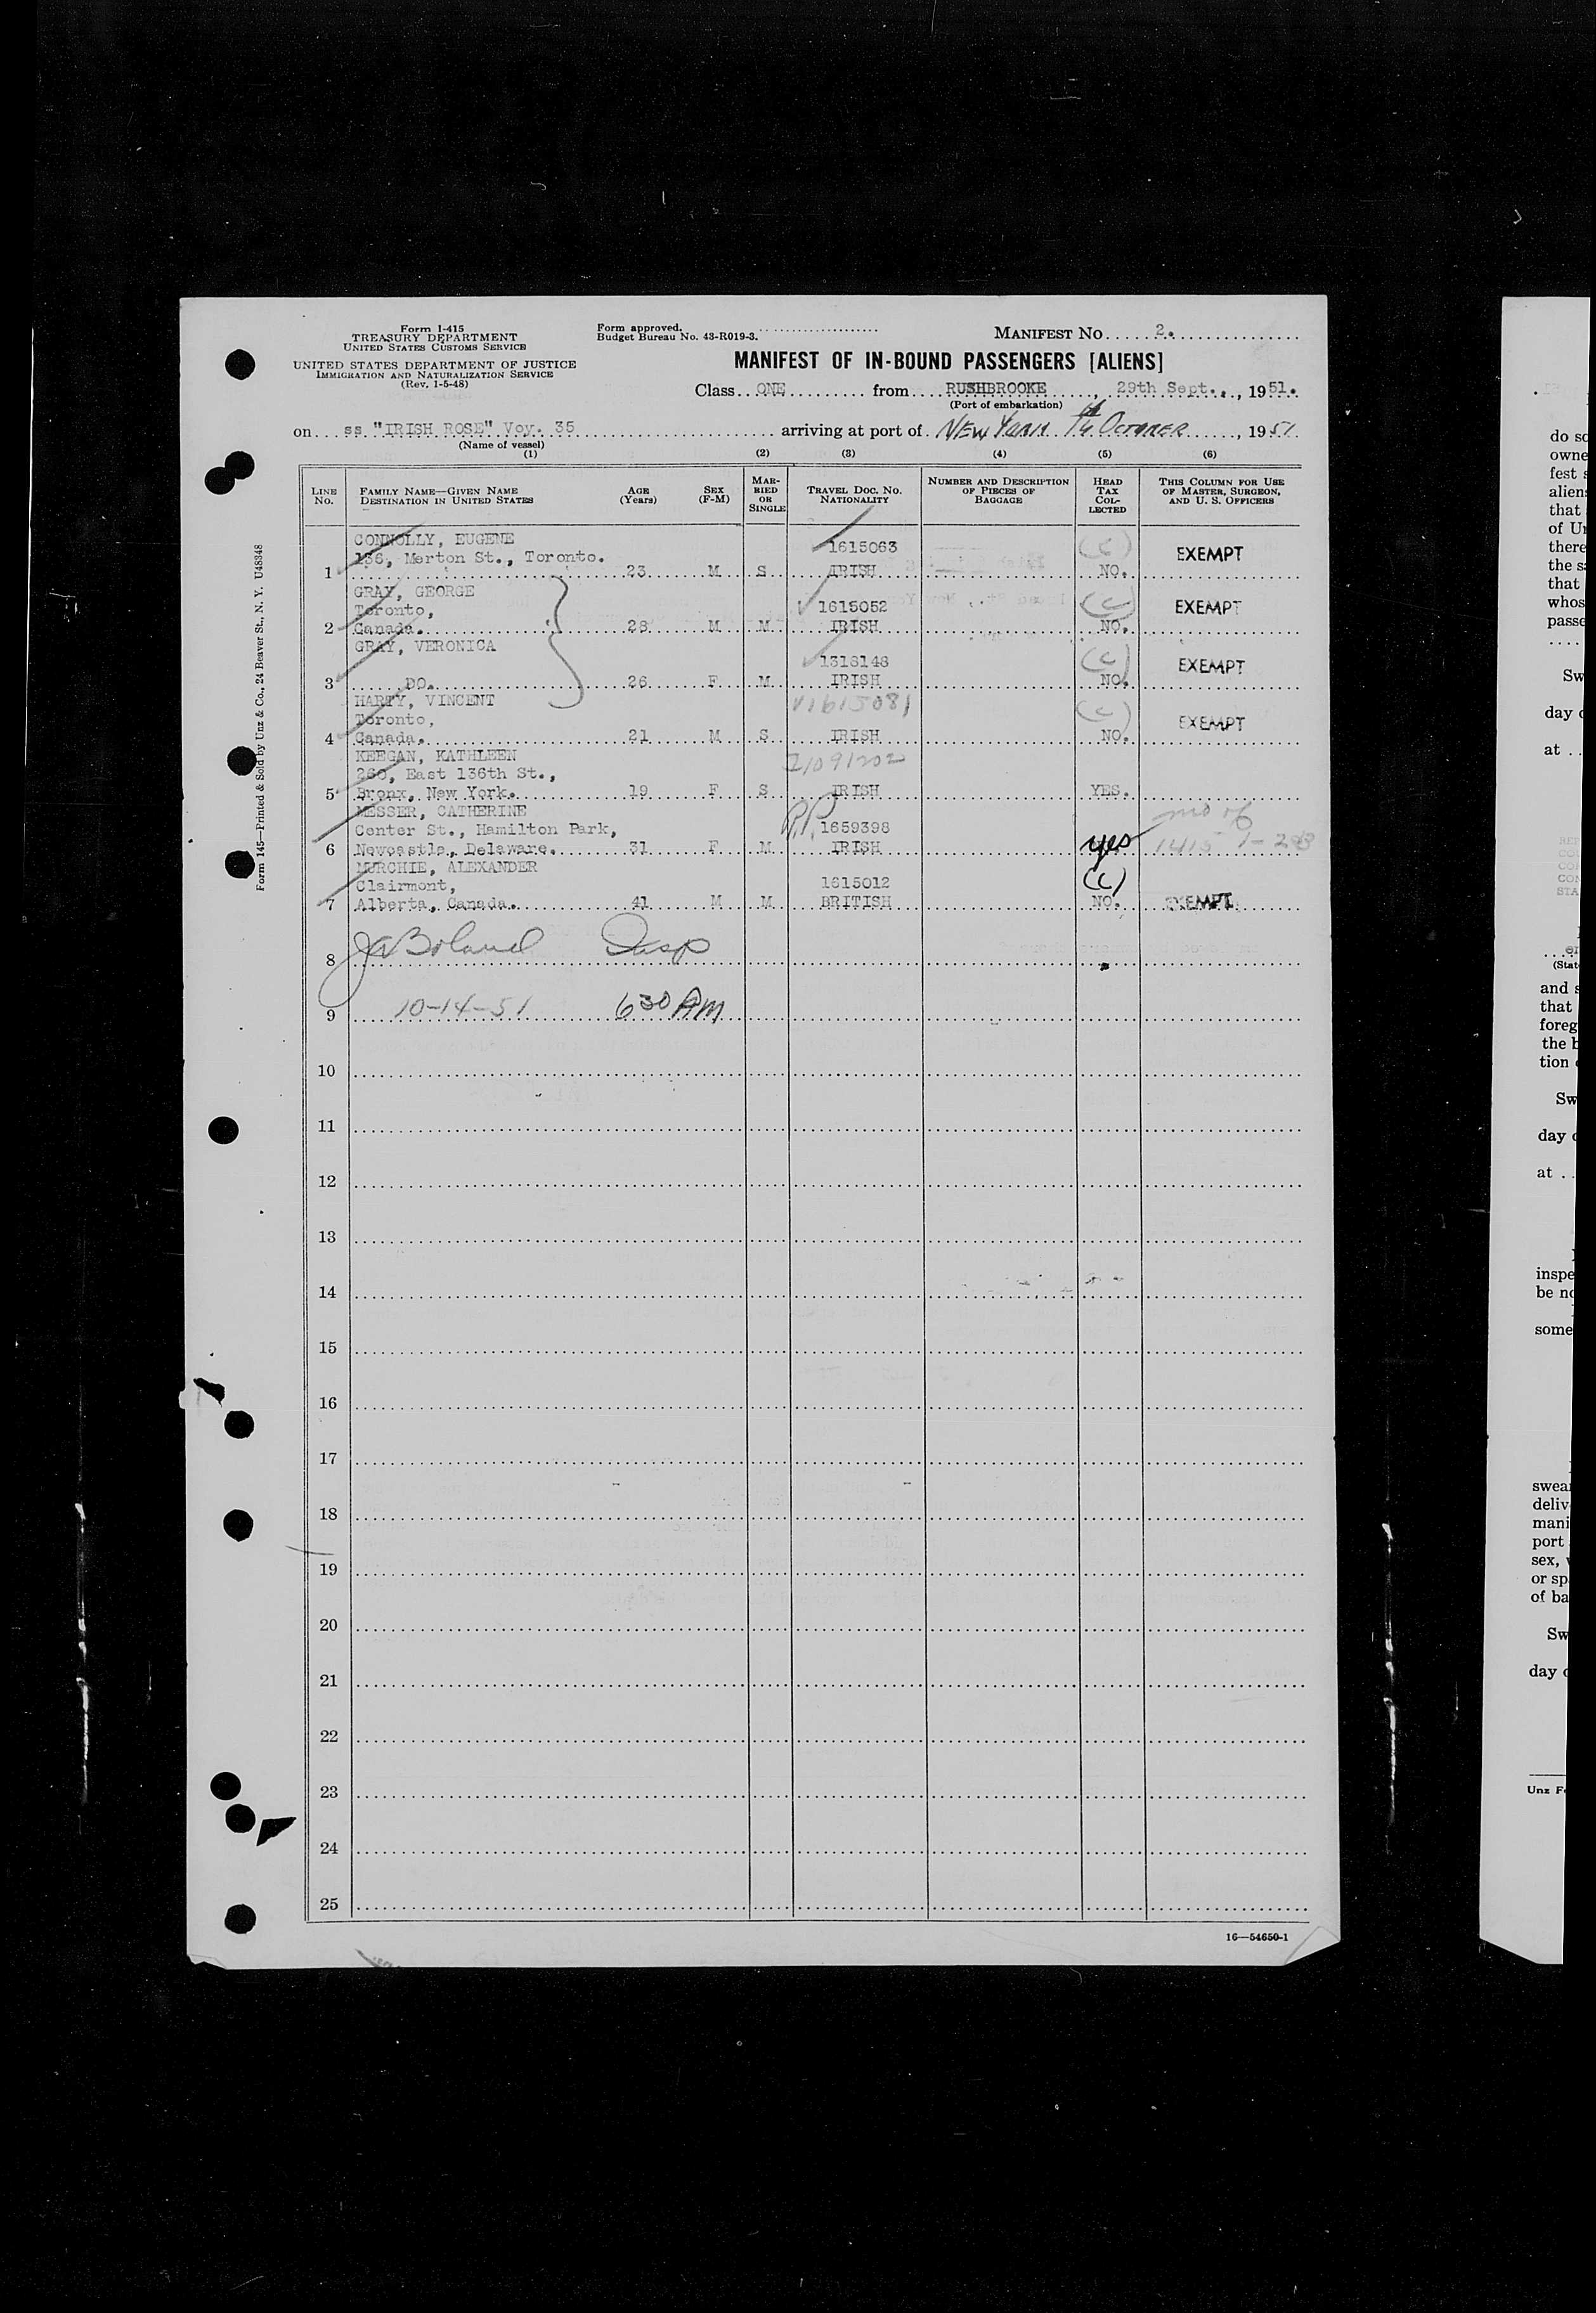 Form I-415
TREASURY DEPARTMENT
UNITED STATES CUSTOMS SERVICE
UNITED STATES DEPARTMENT OF JUSTICE
IMMIGRATION AND NATURALIZATION SERVICE
(Rev. 1-5-48)
Form approved.
Budget Bureau No. 43-R019-3.
MANIFEST NO. 2.
MANIFEST OF IN-BOUND PASSENGERS [ALIENS]
Class ONE from RUSHBROOKE, 29th Sept., 1951.
(Port of embarkation)
on ss "IRISH ROSE" Voy. 35 arriving at port of NEW YORK 14 OCTOBER, 1951
(Name of vessel)
(1) (2) (3) (4) (5) (6)
LINE NO.
FAMILY NAME—GIVEN NAME
DESTINATION IN UNITED STATES
AGE (Years)
SEX (F-M)
MARRIED OR SINGLE
TRAVEL DOC. NO.
NATIONALITY
NUMBER AND DESCRIPTION OF PIECES OF BAGGAGE
HEAD TAX COLLECTED
THIS COLUMN FOR USE OF MASTER, SURGEON, AND U. S. OFFICERS
CONNOLLY, EUGENE 1615063 (C) EXEMPT
136, Merton St., Toronto.
1 23 M S IRISH NO.
GRAY, GEORGE
Toronto, 1615052 (C) EXEMPT
2 Canada. 28 M M IRISH NO.
GRAY, VERONICA 1318148 (C) EXEMPT
3 DO. 26 F M IRISH NO.
HARTY, VINCENT V1615081
Toronto, (C) EXEMPT
4 Canada. 21 M S IRISH NO.
KEEGAN, KATHLEEN I1091202
260, East 136th St.,
5 Bronx, New York. 19 F S IRISH YES.
MESSER, CATHERINE
Center St., Hamilton Park, P.P. 1659398
6 Newcastle, Delaware. 31 F M IRISH yes 1415
MURCHIE, ALEXANDER
Clairmont, 1615012 (C)
7 Alberta, Canada. 41 M M BRITISH NO. EXEMPT
8 JA Boland Insp
9 10-14-51 630 AM
10
11
12
13
14
15
16
17
18
19
20
21
22
23
24
25
16—54650-1
Form 145—Printed & Sold by Unz & Co., 24 Beaver St., N. Y. U48348
do so
owne
fest
alien
that
of U
there
the s
that
whos
passe
Sw
day
at
(Stat
and s
that
foreg
the b
tion
Sw
day
at
inspe
be no
some
swear
deliv
mani
port
sex,
or sp
of ba
Sw
day
Unz F